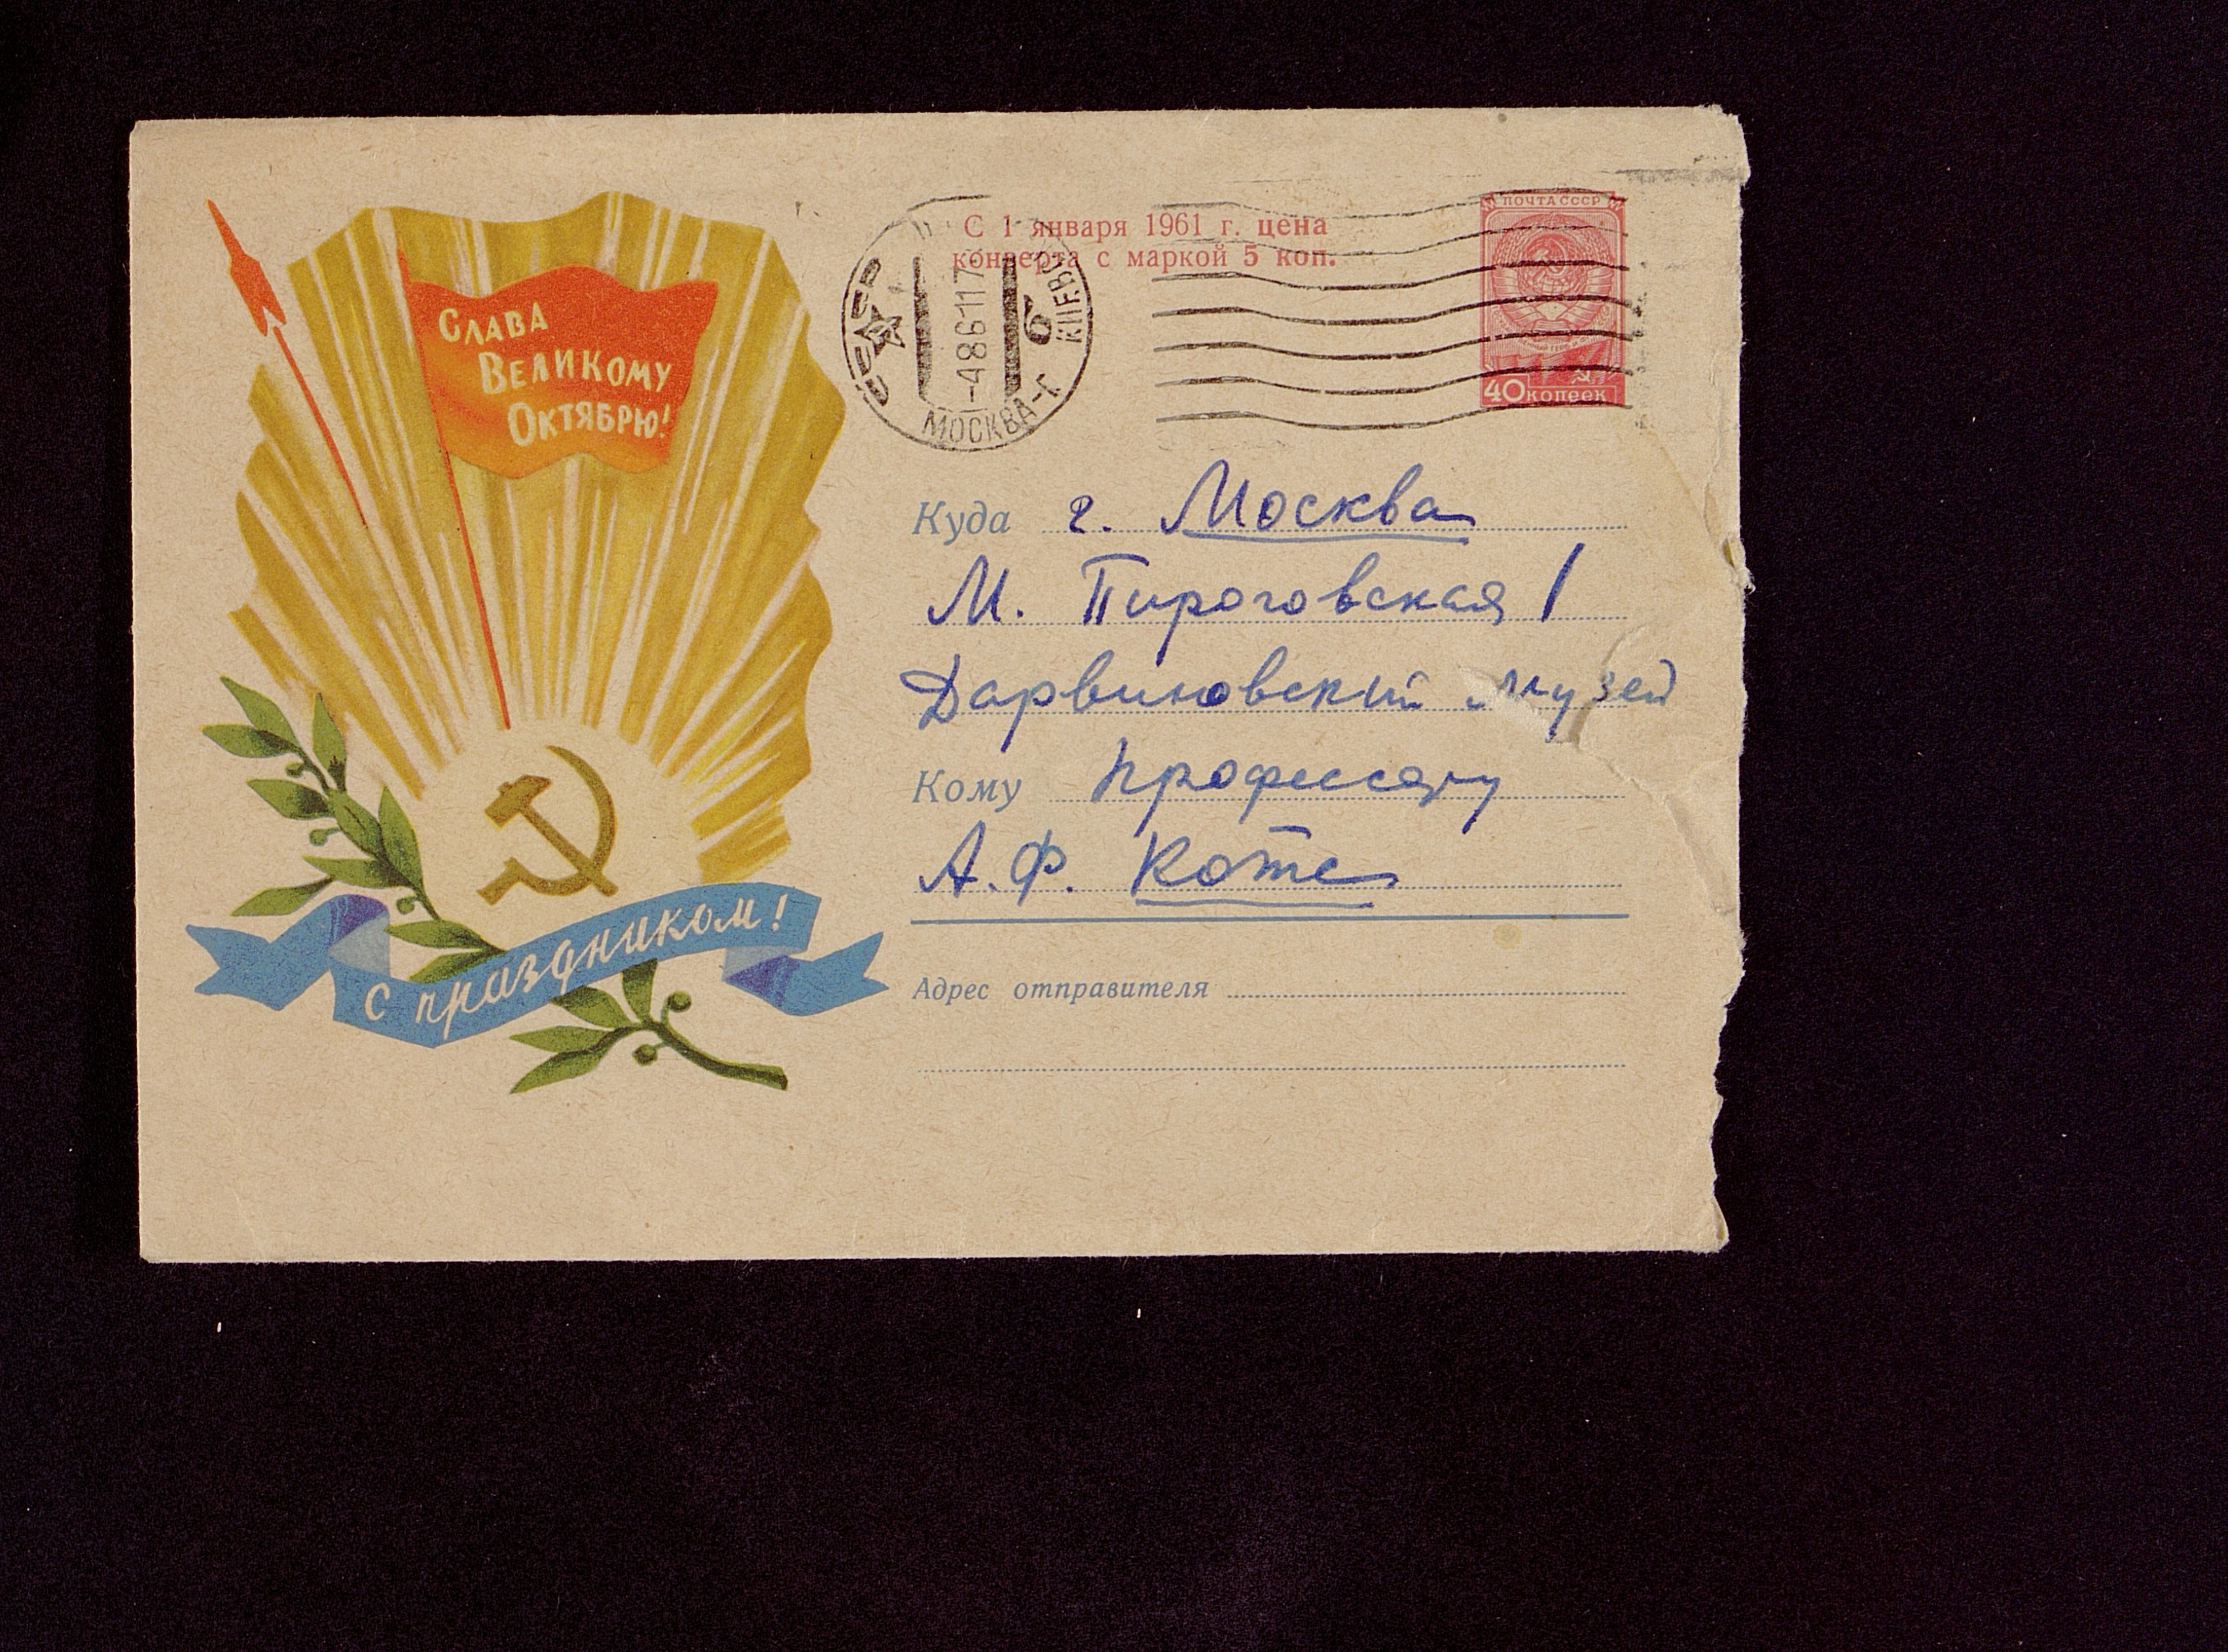 Слава
Великому
Октябрю!
с праздником!
С 1 января 1961 г. цена
конверта с маркой 5 коп.
СССР
-48611 17
6
МОСКВА-Г
ПОЧТА СССР
40 копеек
Куда г. Москва
М. Пироговская 1
Дарвиновский музей
Кому Профессору
А.Ф. Котс
Адрес отправителя